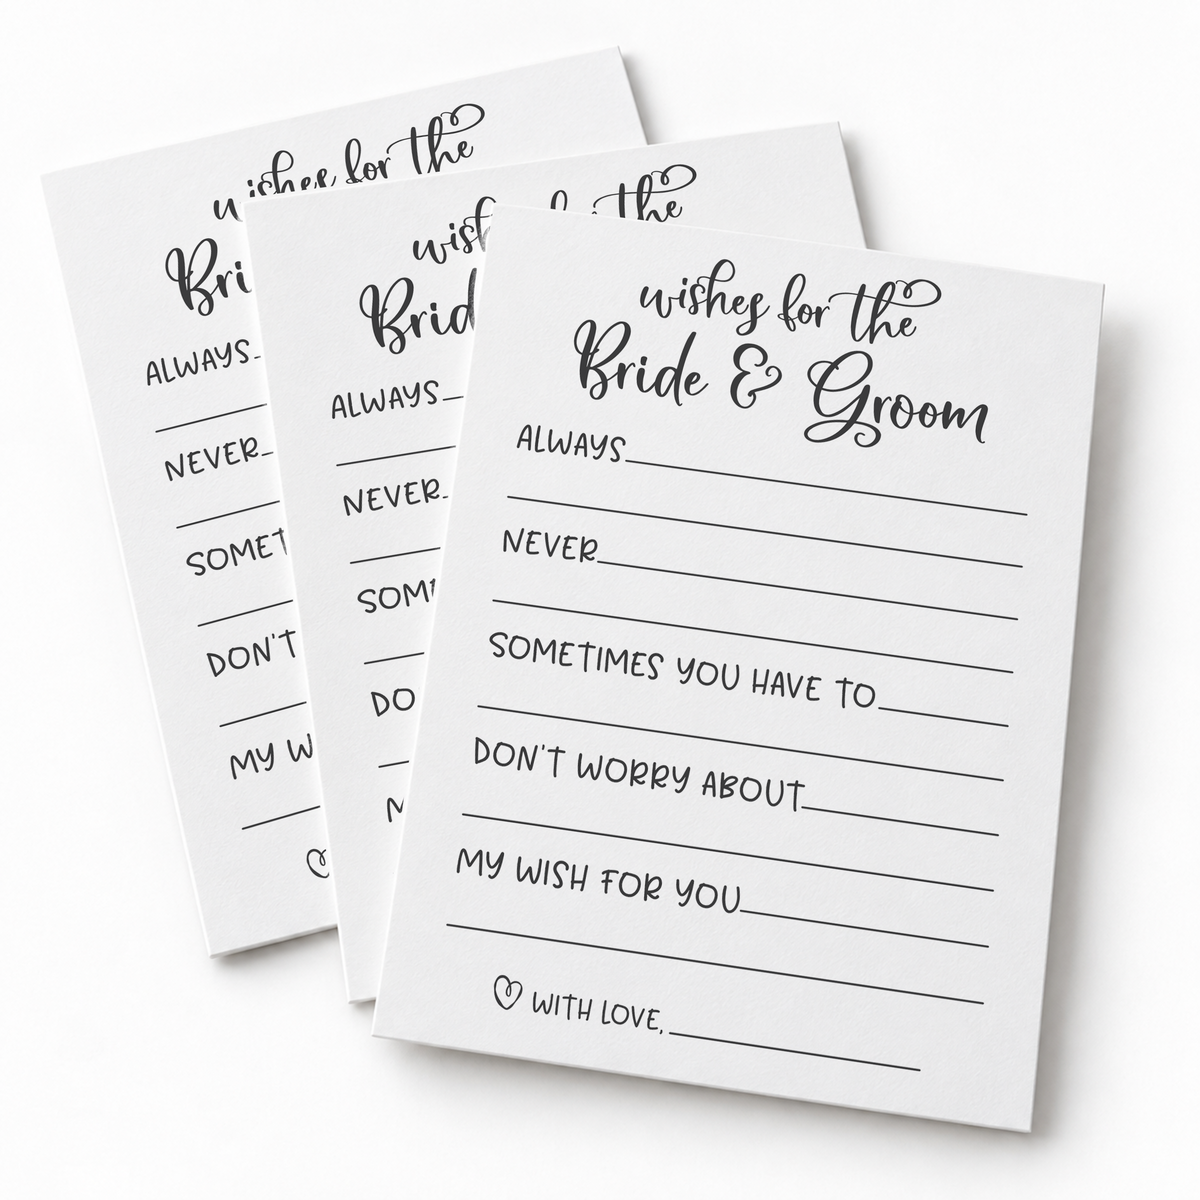 wishes for the
Bri
ALWAYS
NEVER
SOMET
DON'T
MY W
wish the
Brid
ALWAYS
NEVER
SOM
DO
M
wishes for the
Bride & Groom
ALWAYS
NEVER
SOMETIMES YOU HAVE TO
DON'T WORRY ABOUT
MY WISH FOR YOU
WITH LOVE,